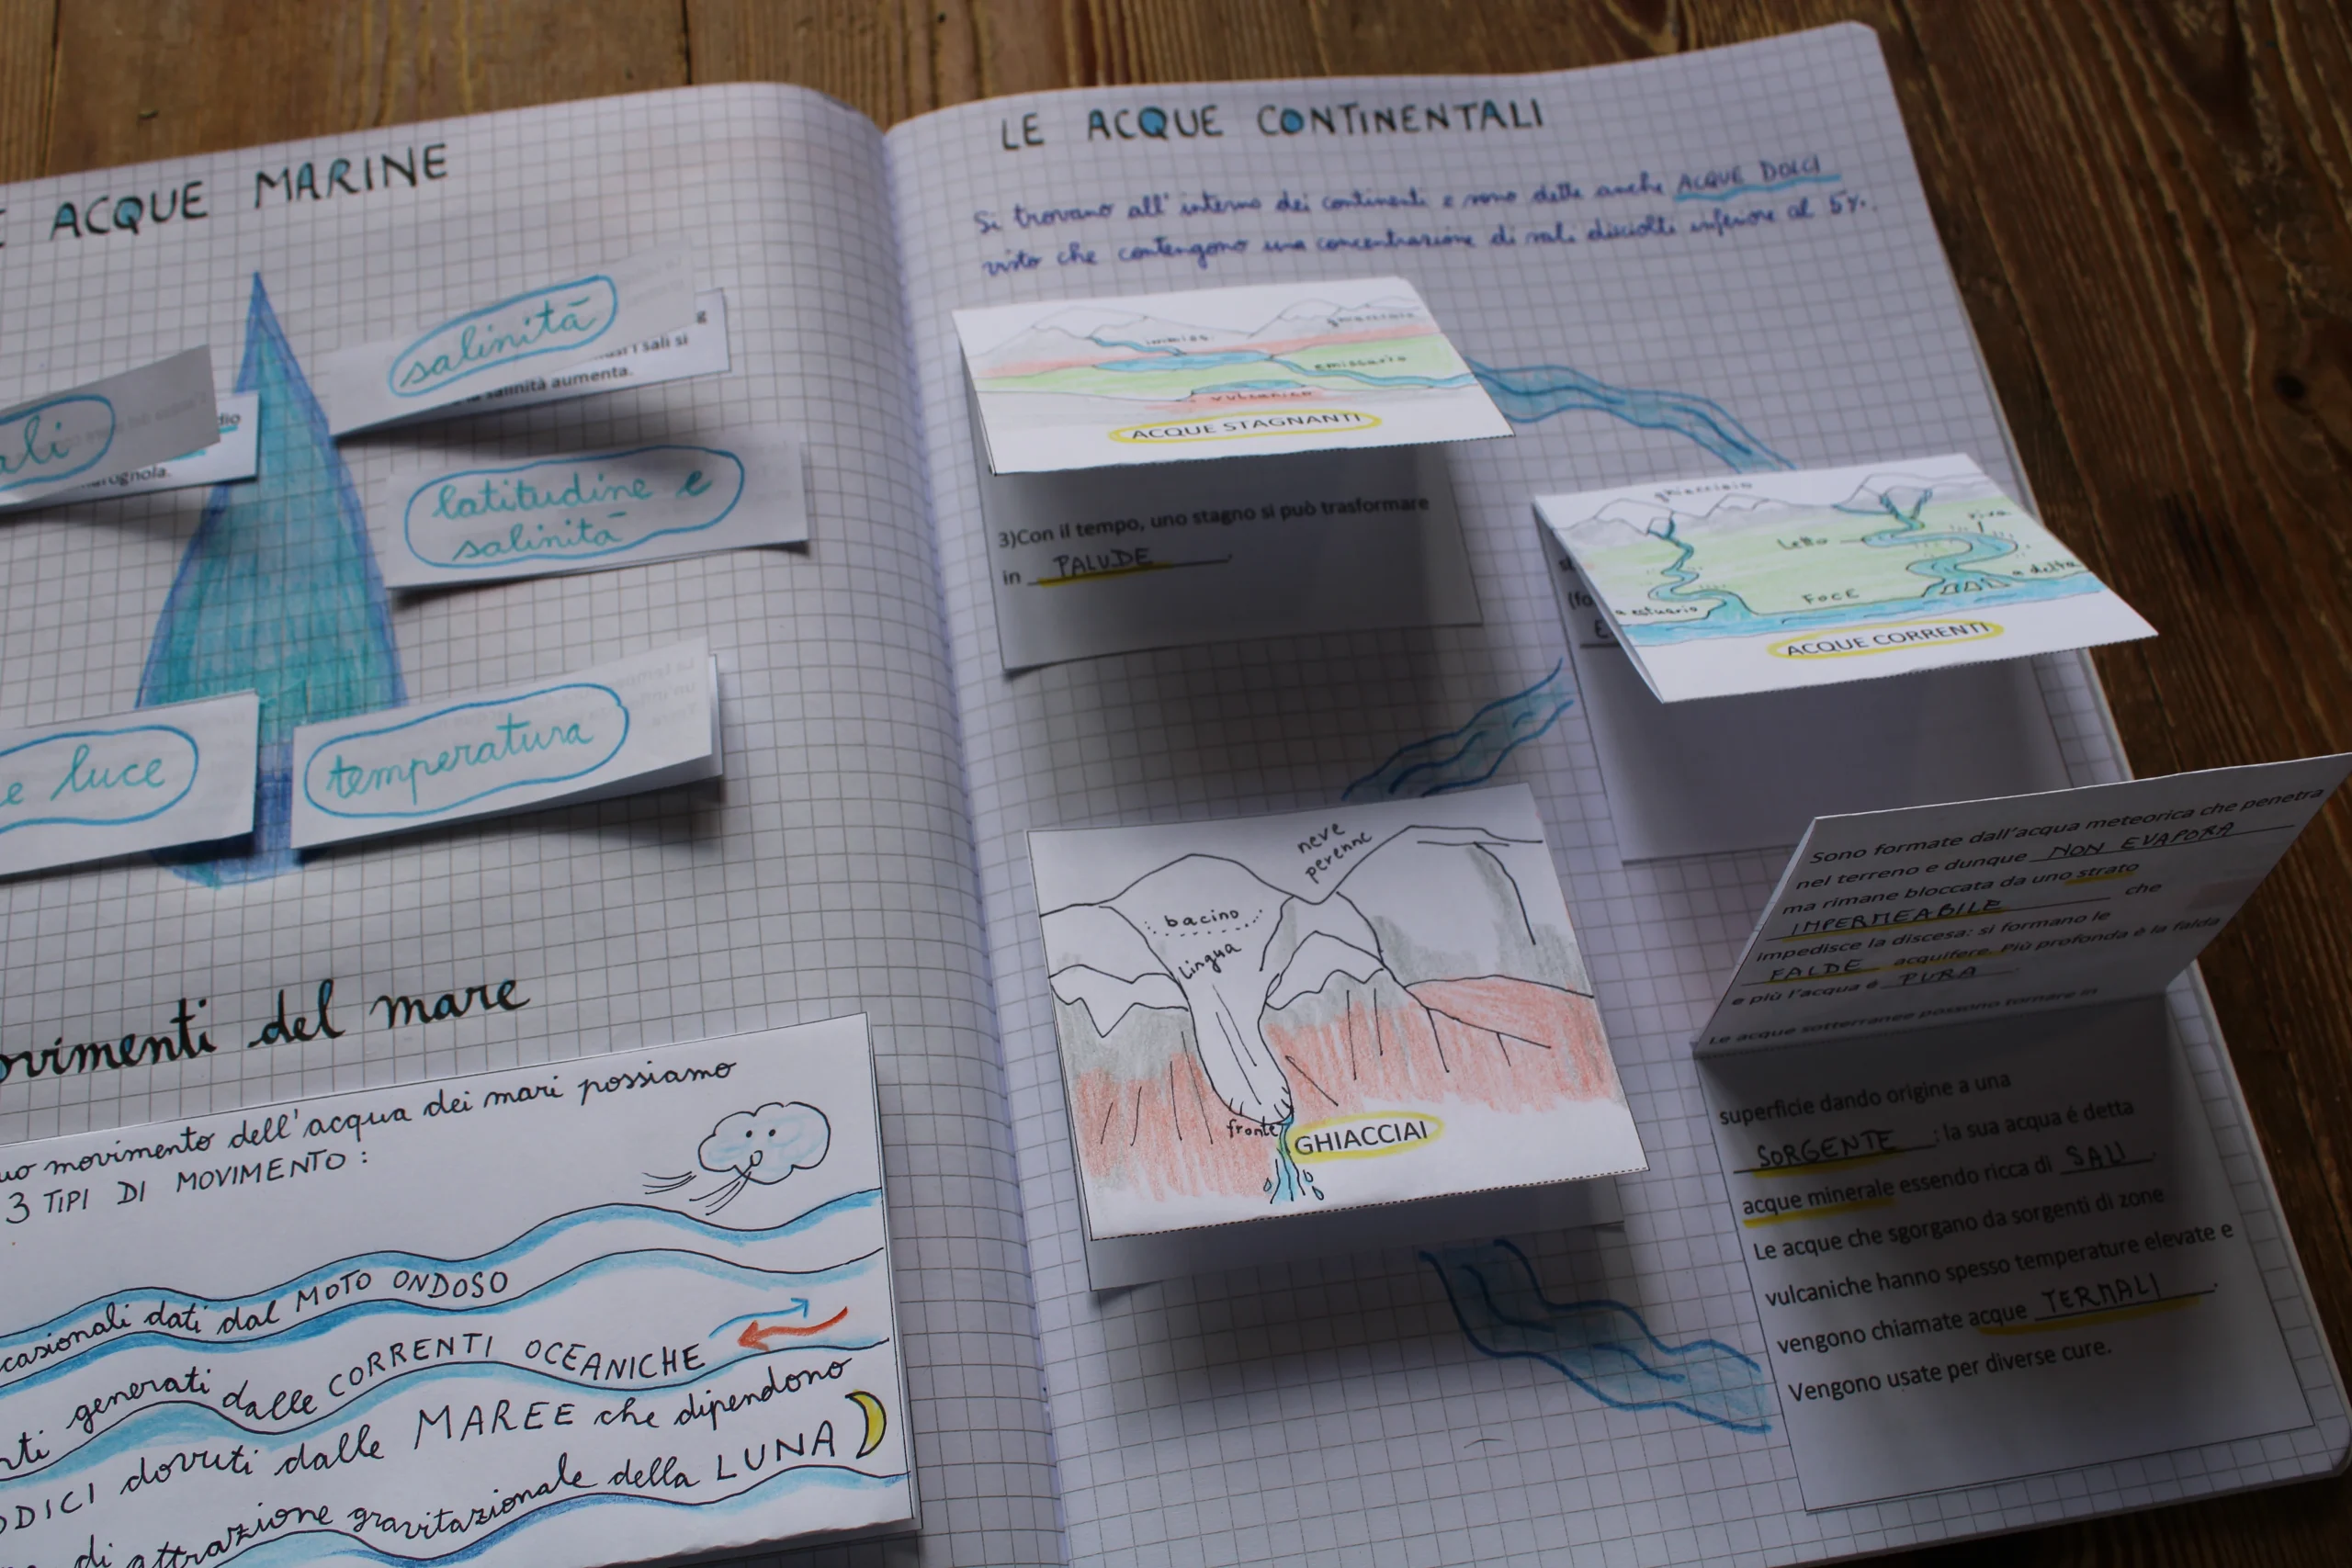 ACQUE MARINE
salinità
i sali si
salinità aumenta.
dio
latitudine e
salinità
e luce
temperatura
movimenti del mare
movimento dell'acqua dei mari possiamo
3 TIPI DI MOVIMENTO:
dati dal MOTO ONDOSO
generati dalle CORRENTI OCEANICHE
dovuti dalle MAREE che dipendono
di attrazione gravitazionale della LUNA
LE ACQUE CONTINENTALI
Si trovano all'interno dei continenti e sono dette anche ACQUE DOLCI
visto che contengono una concentrazione di sali disciolti inferiore al 5%.
emissario
vulcanico
ACQUE STAGNANTI
3)Con il tempo, uno stagno si può trasformare
in PALUDE.
ghiacciaio
riva
Letto
a delta
FOCE
a estuario
ACQUE CORRENTI
neve
perenne
bacino
Lingua
fronte
GHIACCIAI
Sono formate dall'acqua meteorica che penetra
nel terreno e dunque NON EVAPORA
ma rimane bloccata da uno strato
IMPERMEABILE che
impedisce la discesa: si formano le
FALDE acquifere. Più profonda è la falda
e più l'acqua è PURA.
Le acque sotterranee possono tornare in
superficie dando origine a una
SORGENTE: la sua acqua é detta
acque minerale essendo ricca di SALI.
Le acque che sgorgano da sorgenti di zone
vulcaniche hanno spesso temperature elevate e
vengono chiamate acque TERMALI.
Vengono usate per diverse cure.